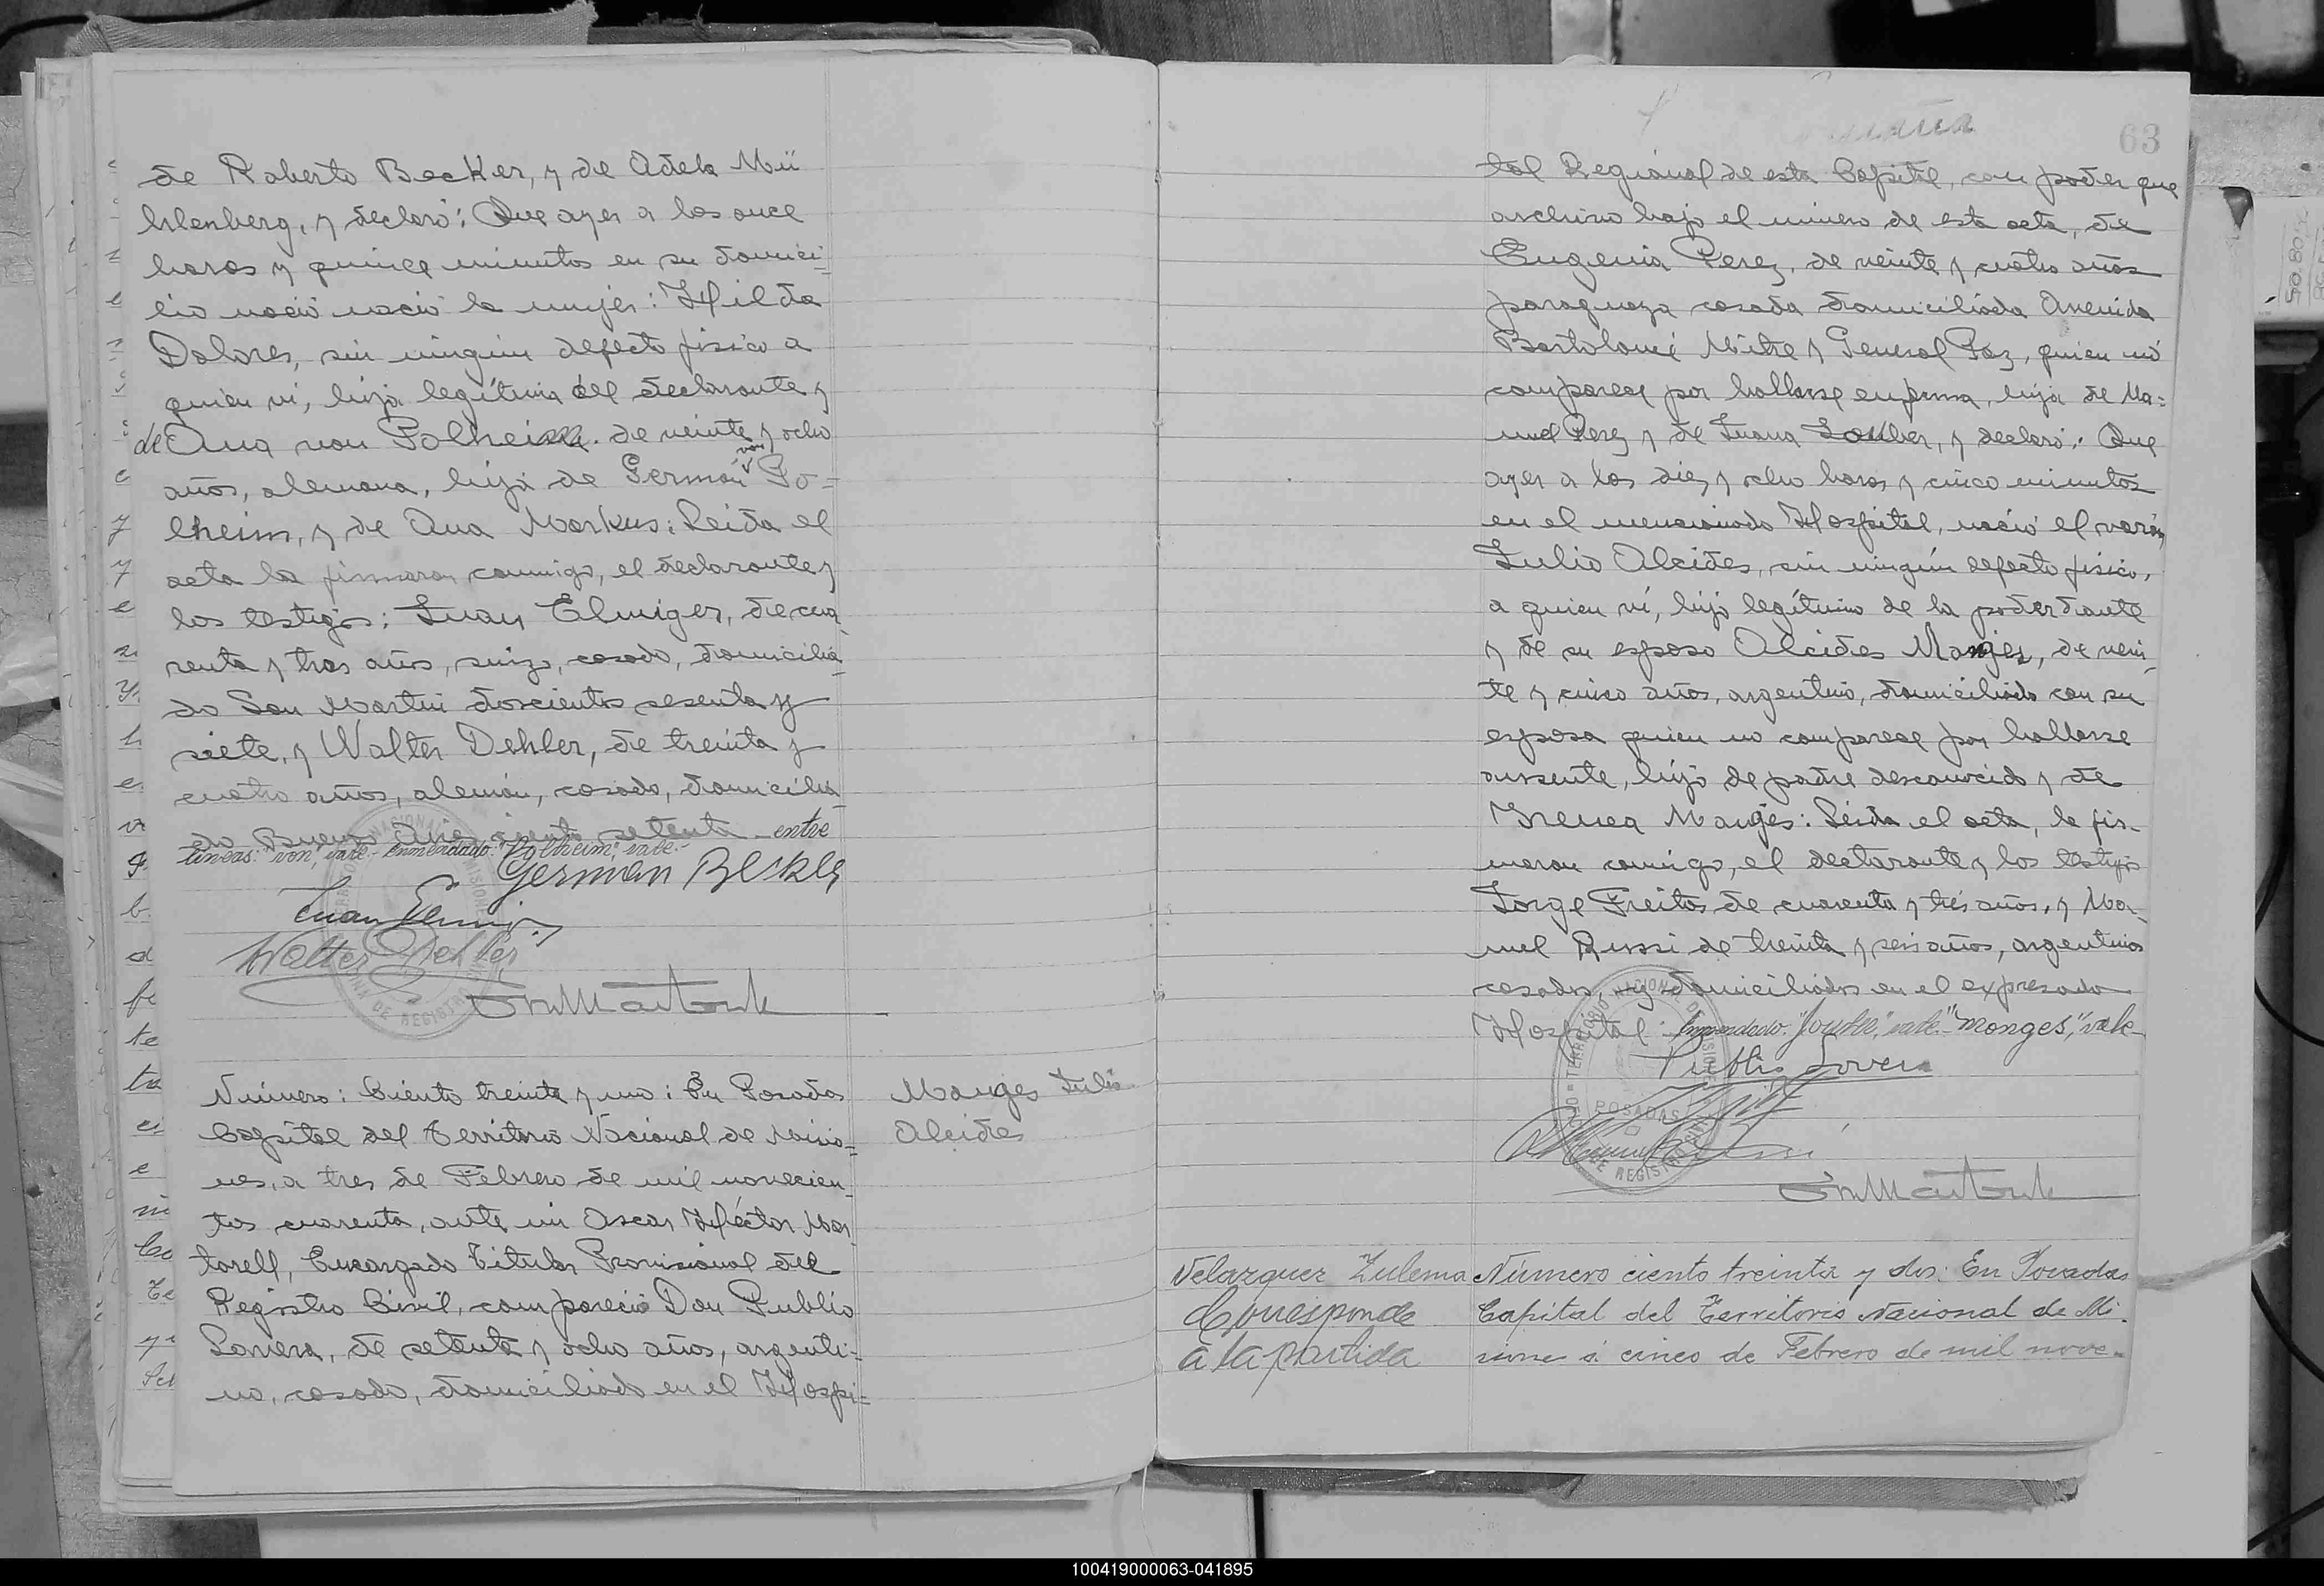 de Roberto Becker, y de Adela Mü
hlenberg, y declaró: Que ayer a las once
horas y quince minutos en su domici-
lio nació nació la mujer: Hilda
Dolores, sin ningún defecto físico a
quien ví, hija legítima del declarante y
de Ana von Polheim. de veinte y ocho
años, alemana, hija de Germán von Po-
lheim, y de Ana Markus: Leida el
acta la firmaron conmigo, el declarante y
los testigos: Juan Elmiger, de cua-
renta y tres años, suizo, casado, domicilia-
do San Martin doscientos sesenta y
siete, y Walter Dehler, de treinta y
cuatro años, alemán, casado, domicilia-
do Buenos Aires ciento setenta - entre
lineas: "von", vale - Enmendado: "Polheim", vale -
German Becker
Juan Elmiger
Walter Dehler
Número: Ciento treinta y uno: En Posadas
Capital del Territorio Nacional de Misio-
nes, a tres de Febrero de mil novecien-
tos cuarenta, ante mi Oscar Héctor Mar
torell, Encargado Titular Provisional del
Registro Civil, compareció Don Publio
Lovera, de setenta y ocho años, argenti-
no, casado, domiciliado en el Hospi-
Monges Julio
Alcides
63
tal Regional de esta Capital, con poder que
archivo bajo el número de esta acta, de
Eugenia Perez, de veinte y cuatro años
paraguaya casada domiciliada Avenida
Bartolomé Mitre y General Paz, quien nó
comparece por hallarse enferma, hija de Ma-
nuel Perez y de Juana, y declaró: Que
ayer a las diez y ocho horas y cinco minutos
en el mencionado Hospital, nació el varón
Julio Alcides, sin ningún defecto físico,
a quien ví, hijo legítimo de la poderdante
y de su esposo Alcides Monges, de vein-
te y cinco años, argentino, domiciliado con su
esposa quien no comparece por hallarse
ausente, hijo de padre desconocido y de
Irenea Monges: Leida el acta, la fir-
maron conmigo, el declarante y los testigos
Jorge Freitas de cuarenta y trés años, y Ma-
nuel Russi de treinta y seis años, argentinos
casados, y domiciliados en el expresado
Hospital: Enmendado: vale - "Monges", vale
Publio Lovera
TERRITORIO NACIONAL DE MISIONES
POSADAS
Velazquez Zulema
Corresponde
a la partida
Número ciento treinta y dos: En Posadas
Capital del Territorio Nacional de Mi-
siones á cinco de Febrero de mil nove-
100419000063-041895